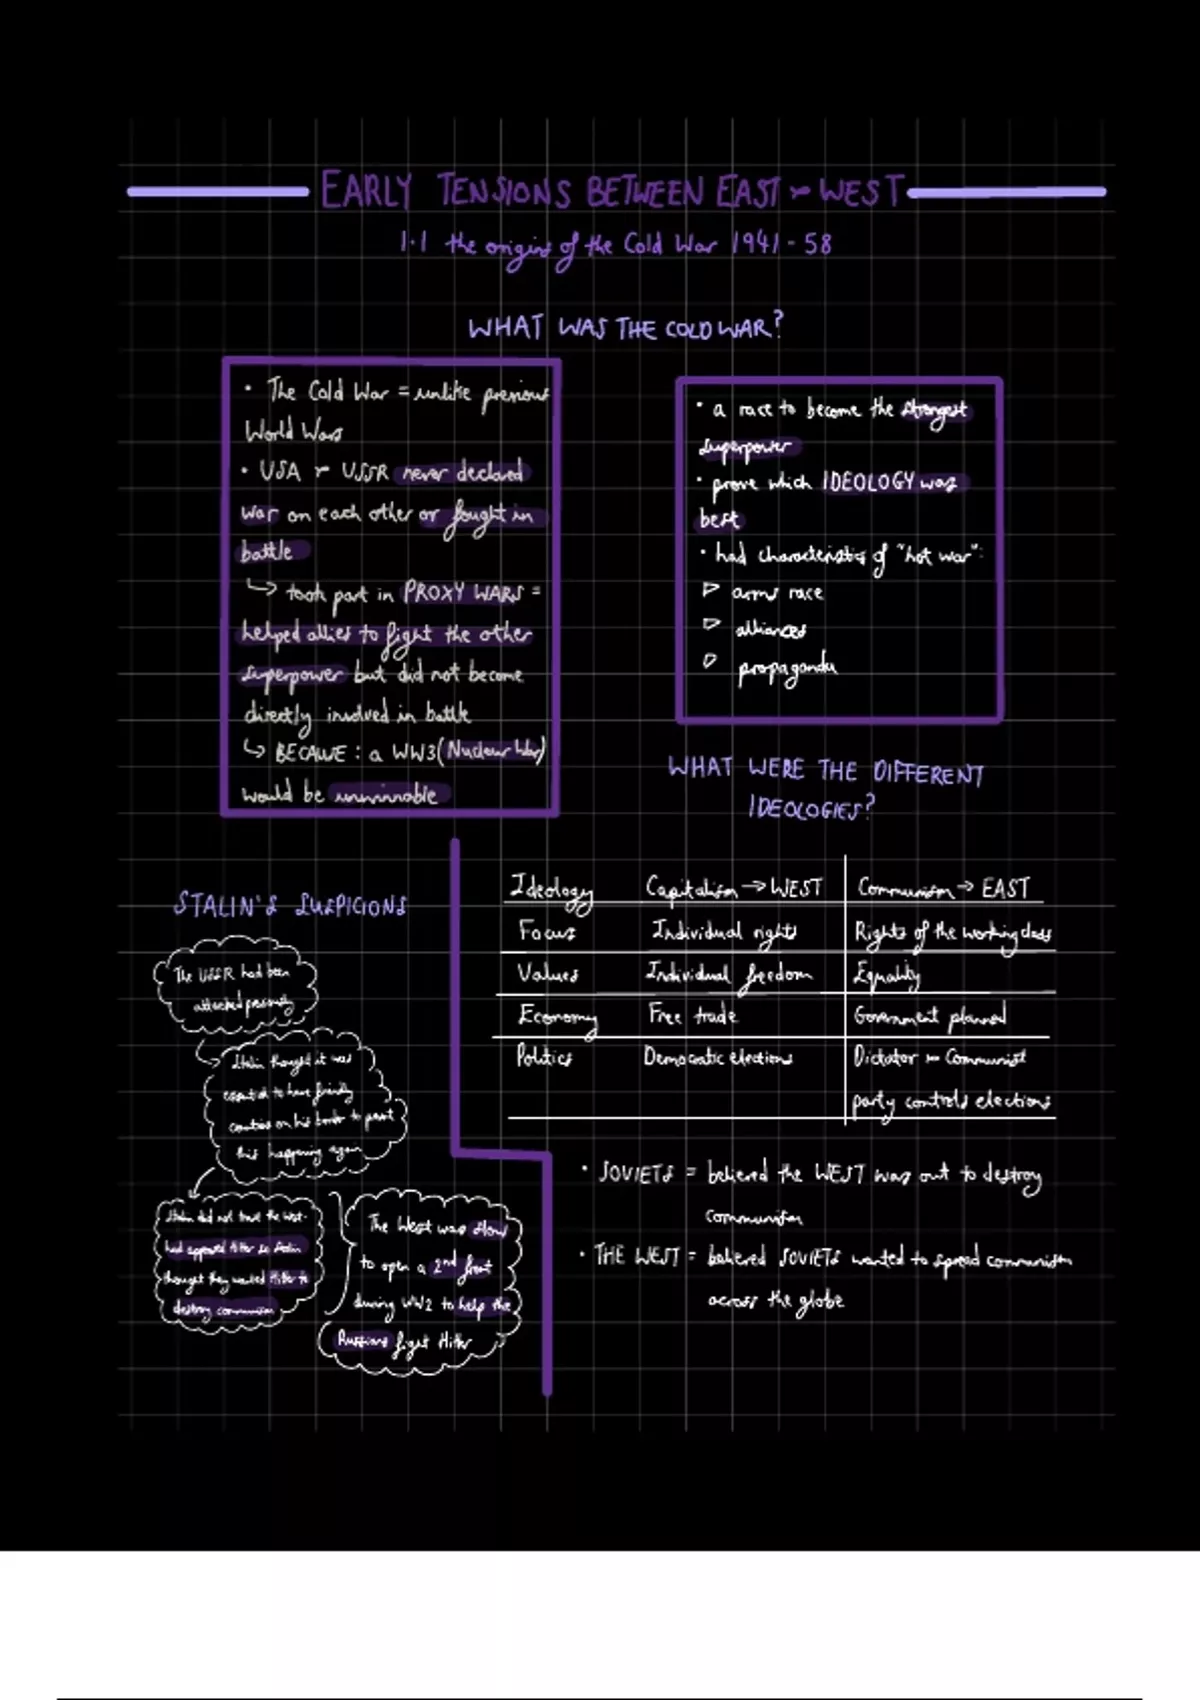 EARLY TENSIONS BETWEEN EAST & WEST
1.1 the origins of the Cold War 1941 - 58
WHAT WAS THE COLD WAR?
• The Cold War = unlike previous
World Wars
• USA & USSR never declared
war on each other or fought in
battle
↳ took part in PROXY WARS =
helped allies to fight the other
superpower but did not become
directly involved in battle
↳ BECAUSE : a WW3 (Nuclear War)
would be unwinnable
• a race to become the strongest
superpower
• prove which IDEOLOGY was
best
• had characteristics of "hot war":
▷ arms race
▷ alliances
▷ propaganda
WHAT WERE THE DIFFERENT
IDEOLOGIES?
Ideology Capitalism → WEST Communism → EAST
Focus Individual rights Rights of the working class
Values Individual freedom Equality
Economy Free trade Government planned
Politics Democratic elections Dictator & Communist
party controls elections
• SOVIETS = believed the WEST was out to destroy
communism
• THE WEST = believed SOVIETS wanted to spread communism
across the globe
STALIN'S SUSPICIONS
The USSR had been
attacked previously
Stalin thought it was
essential to have friendly
countries on his border to prevent
this happening again
Stalin did not trust the West -
had appeased Hitler so Stalin
thought they wanted Hitler to
destroy communism
The West was slow
to open a 2nd front
during WW2 to help the
Russians fight Hitler